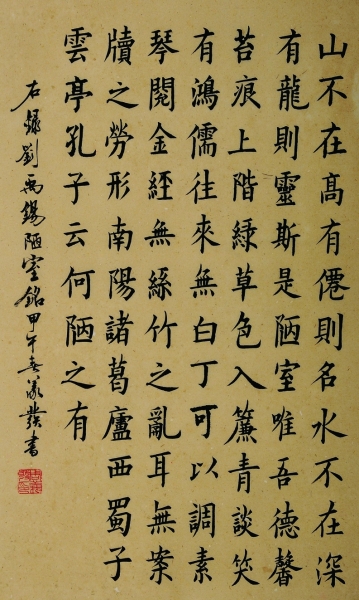 山不在高有僊則名水不在深
有龍則靈斯是陋室唯吾德馨
苔痕上階綠草色入簾青談笑
有鴻儒往來無白丁可以調素
琴閱金經無絲竹之亂耳無案
牘之勞形南陽諸葛廬西蜀子
雲亭孔子云何陋之有
右錄劉禹錫陋室銘甲午春義發書